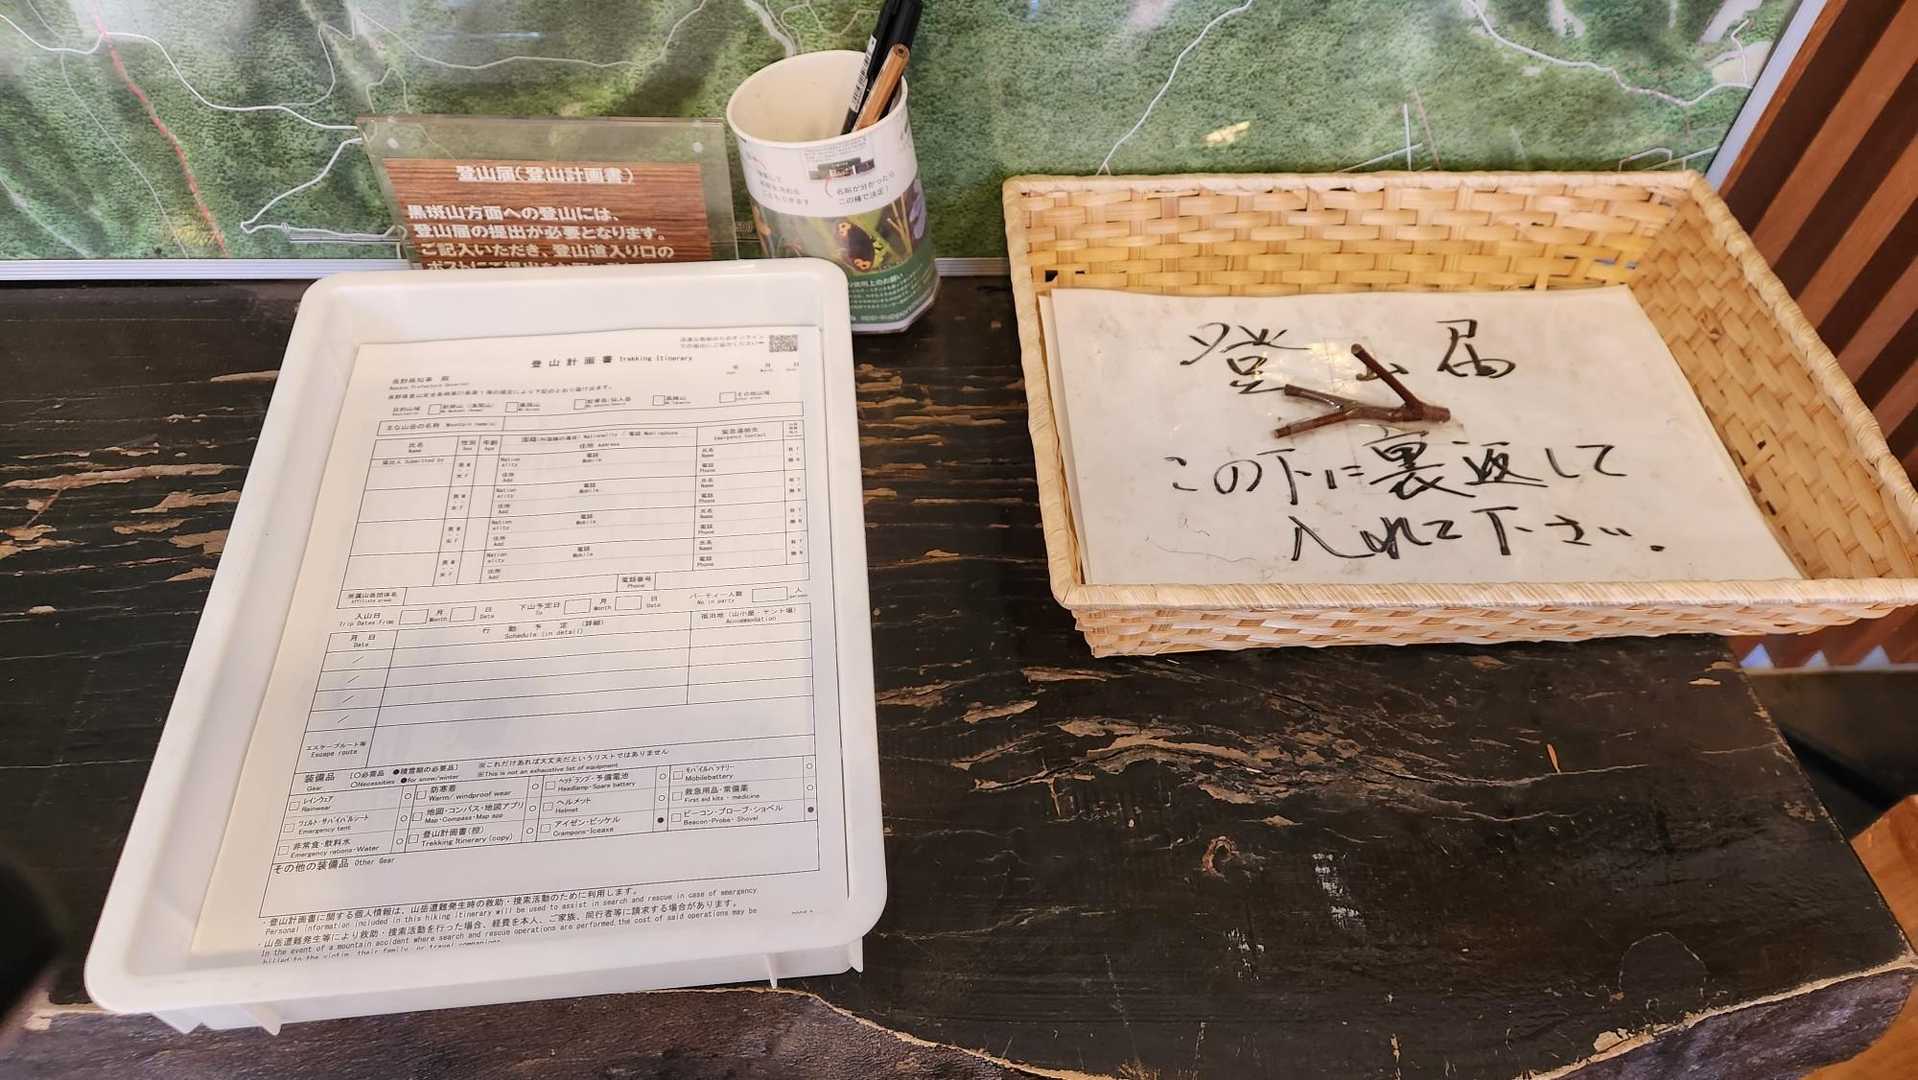 登山届(登山計画書)
黒斑山方面への登山には、
登山届の提出が必要となります。
ご記入いただき、登山道入り口の
名前が分かったら
この種で決定!
登山届
この下に裏返して
入れて下さい.
登山計画書 Trekking Itinerary
年 月 日
長野県知事 殿
Nagano Prefecture Governor
目的山域
その他山域
主な山岳の名称 Mountain name(s)
氏名 Name
性別 Sex
年齢 Age
住所 Address
緊急連絡先
Emergency Contact
提出人 Submitted by
Nationality 電話 Mobile 氏名 Name
住所 Add 電話 Phone
Nationality 電話 Mobile 氏名 Name
住所 Add 電話 Phone
Nationality 電話 Mobile 氏名 Name
住所 Add 電話 Phone
Nationality 電話 Mobile 氏名 Name
住所 Add 電話 Phone
所属山岳団体名
電話番号 Phone
入山日 月 日 下山予定日 月 日 パーティー人数 人
Trip Dates From Month Date To Month Date No.in party
月 日 Date
行動予定(詳細)
Schedule(in detail)
宿泊地(山小屋・テント場)
Accommodation
／
／
／
エスケープルート等
Escape route
装備品 [○必需品 ●積雪期の必要品] ※これだけあれば大丈夫だというリストではありません
Gear ○Necessities ●for snow/winter ※This is not an exhaustive list of equipment
レインウェア Rainwear ○ 防寒着 Warm/windproof wear ○ ヘッドランプ・予備電池 Headlamp・Spare battery ○ モバイルバッテリー Mobilebattery ○
ツェルト・サバイバルシート Emergency tent ○ 地図・コンパス・地図アプリ Map・Compass・Map app ○ ヘルメット Helmet ○ 救急用品・常備薬 First aid kits・medicine ○
非常食・飲料水 Emergency rations・Water ○ 登山計画書(控) Trekking Itinerary (copy) ○ アイゼン・ピッケル Crampons・Iceaxe ● ビーコン・プローブ・ショベル Beacon・Probe・Shovel ●
その他の装備品 Other Gear
・登山計画書に関する個人情報は、山岳遭難発生時の救助・捜索活動のために利用します。
Personal information included in this hiking itinerary will be used to assist in search and rescue in case of emergency
・山岳遭難発生等により救助・捜索活動を行った場合、経費を本人、ご家族、同行者等に請求する場合があります。
In the event of a mountain accident where search and rescue operations are performed,the cost of said operations may be
billed to the victim, their family, or travel companions